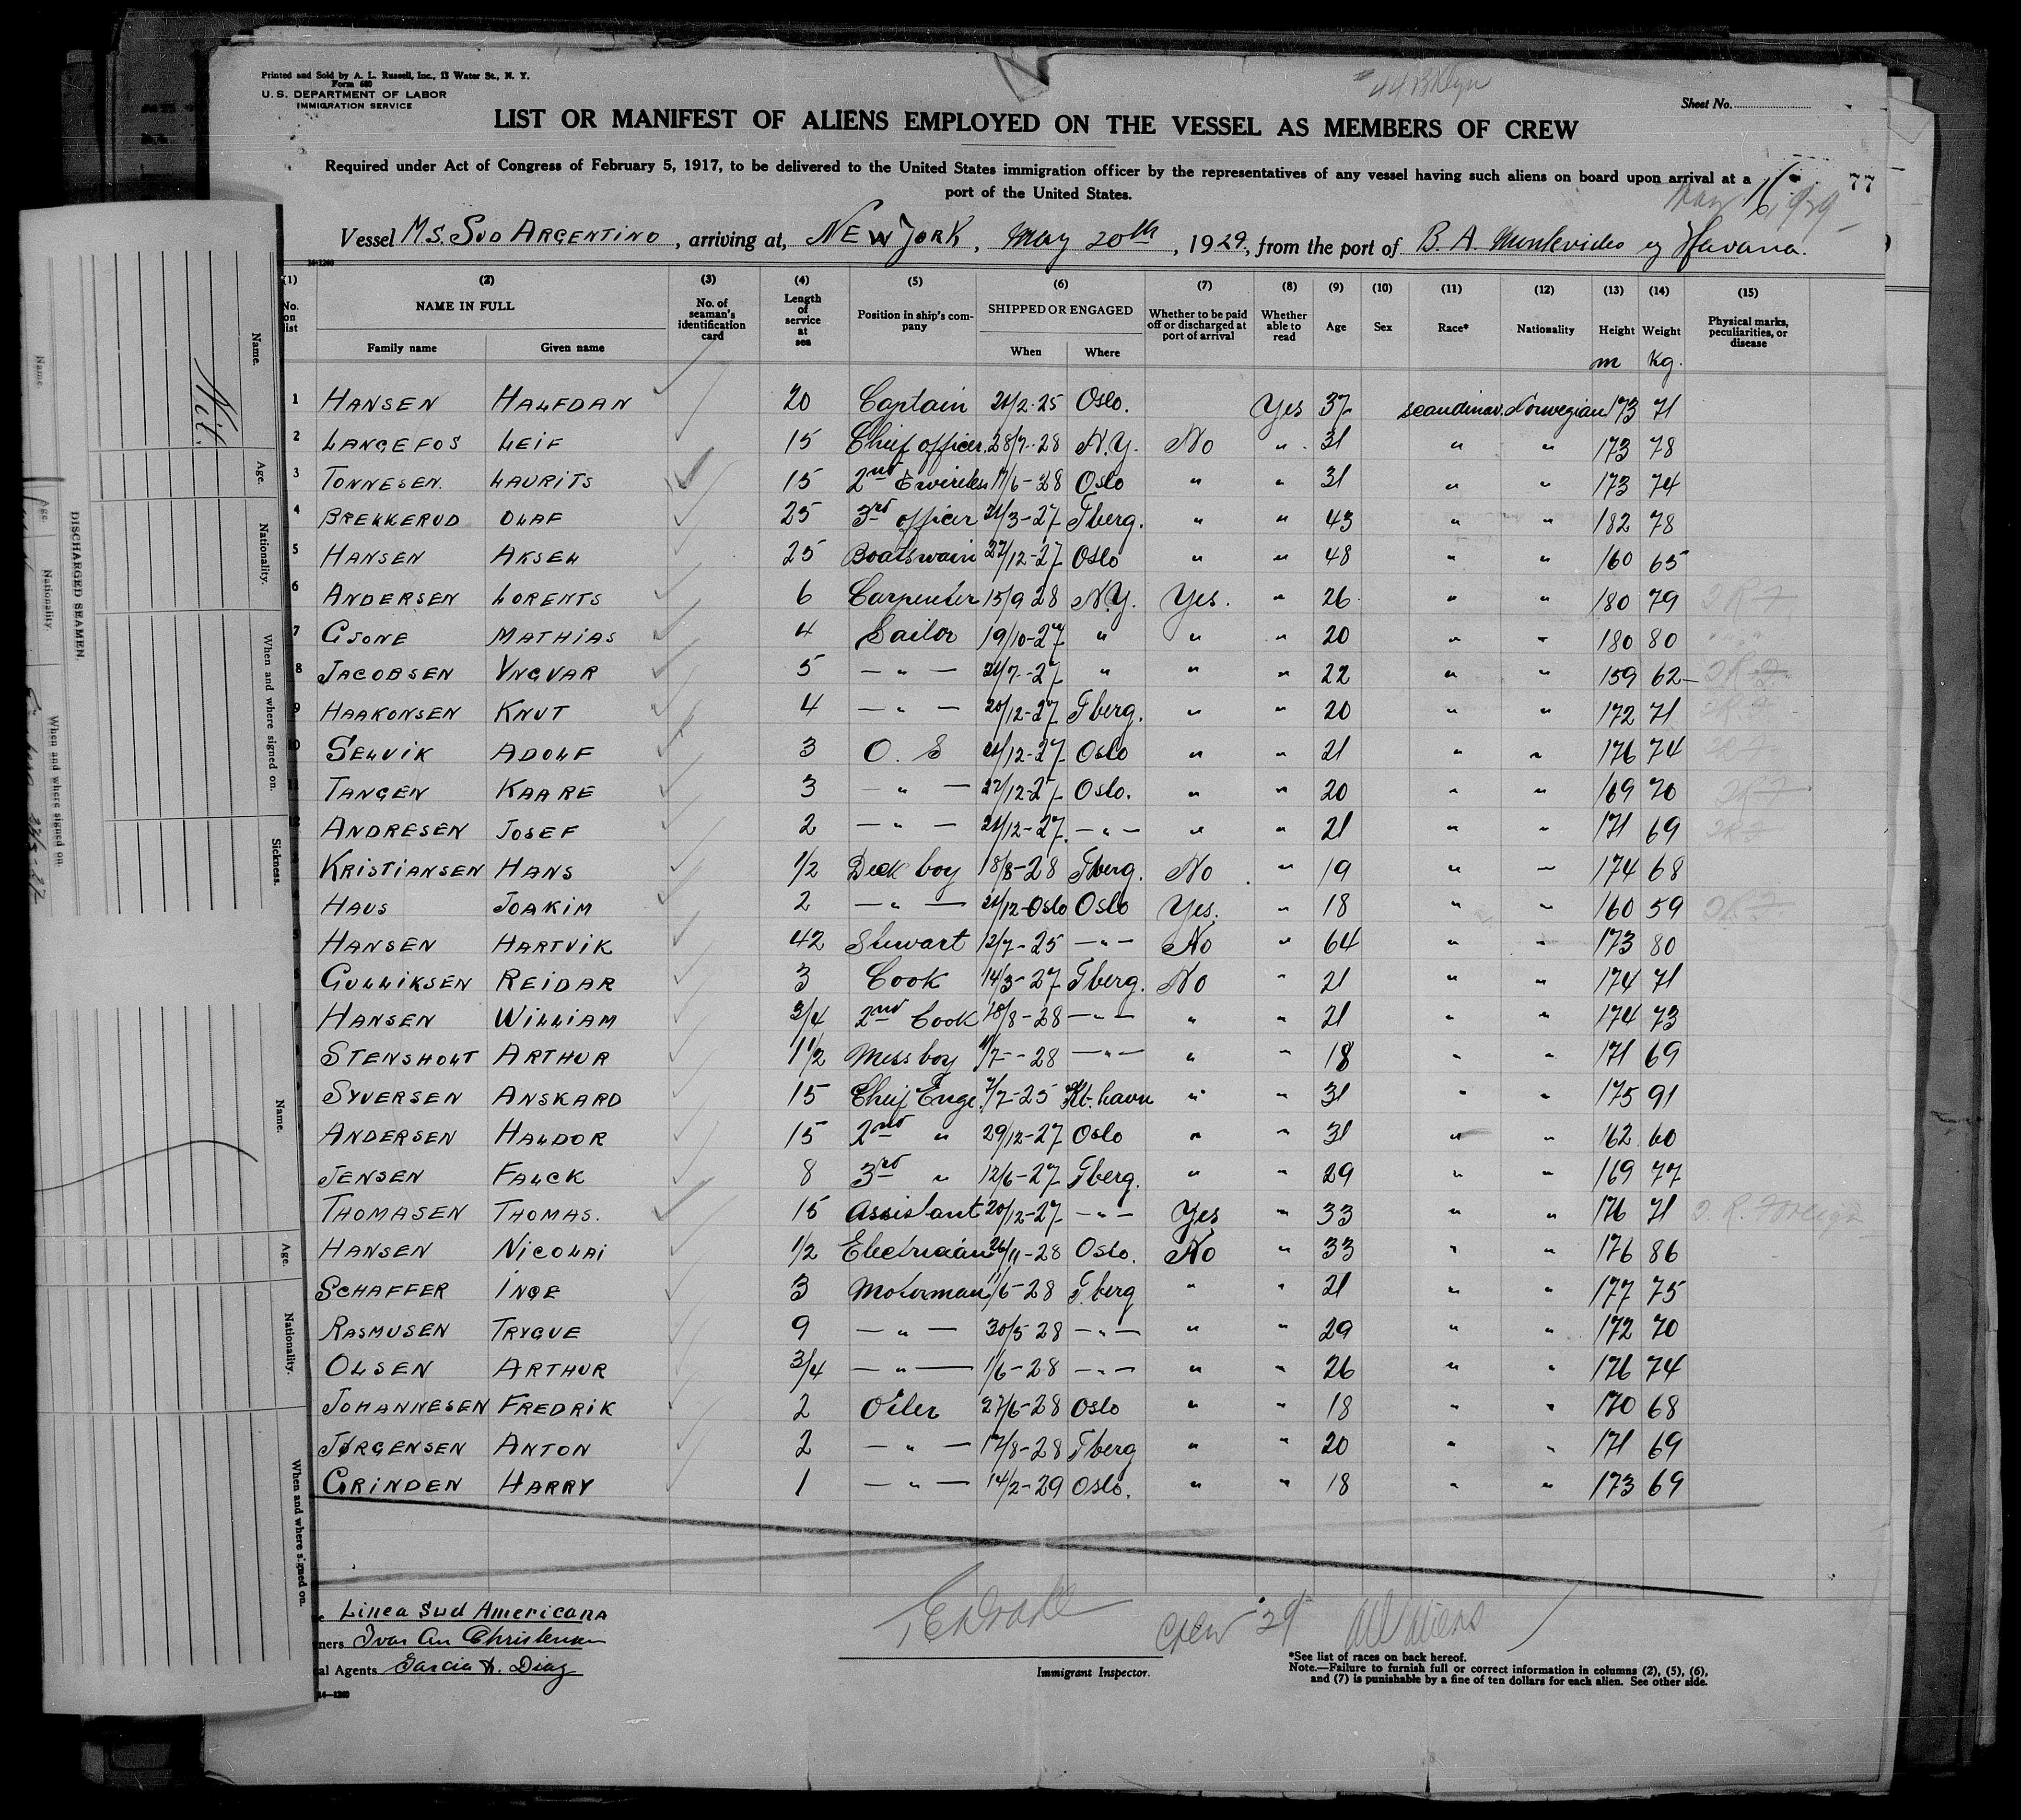 Printed and Sold by A. L. Russell, Inc., 13 Water St., N. Y.
Form 680
U.S. DEPARTMENT OF LABOR
IMMIGRATION SERVICE
Sheet No.
LIST OR MANIFEST OF ALIENS EMPLOYED ON THE VESSEL AS MEMBERS OF CREW
Required under Act of Congress of February 5, 1917, to be delivered to the United States immigration officer by the representatives of any vessel having such aliens on board upon arrival at a
port of the United States.
77
Vessel M.S. SUD ARGENTINO, arriving at, NEW YORK, May 20th, 1929, from the port of B. A. Montevideo og Havana.
14-1240
(1) (2) (3) (4) (5) (6) (7) (8) (9) (10) (11) (12) (13) (14) (15)
No. on list NAME IN FULL Family name Given name No. of seaman's identification card Length of service at sea Position in ship's company SHIPPED OR ENGAGED When Where Whether to be paid off or discharged at port of arrival Whether able to read Age Sex Race* Nationality Height Weight Physical marks, peculiarities, or disease
m Kg.
1 HANSEN HALFDAN 20 Captain 21/2-25 Oslo. Yes 37 Scandinav. Norwegian 173 71
2 LANGEFOS LEIF 15 Chief officer 28/7-28 N.Y. No " 31 " " 173 78
3 TONNESEN. LAURITS 15 2nd 17/6-28 Oslo " " 31 " " 173 74
4 BREKKERUD OLAF 25 3rd officer 21/3-27 Tberg. " " 43 " " 182 78
5 HANSEN AKSEL 25 Boatswain 27/12-27 Oslo " " 48 " " 160 65
6 ANDERSEN LORENTS 6 Carpenter 15/9 28 N.Y. Yes. " 26 " " 180 79
7 GJONE MATHIAS 4 Sailor 19/10-27 " " " 20 " " 180 80
8 JACOBSEN YNGVAR 5 — " — 21/7-27 " " " 22 " " 159 62
9 HAAKONSEN KNUT 4 — " — 20/12-27 Tberg. " " 20 " " 172 71
10 SELVIK ADOLF 3 O. S 21/12-27 Oslo " " 21 " " 176 74
11 TANGEN KAARE 3 — " — 27/12-27 Oslo. " " 20 " " 169 70
12 ANDRESEN JOSEF 2 — " — 21/12-27 — " — " " 21 " " 171 69
KRISTIANSEN HANS 1/2 Deck boy 18/8-28 Tberg. No " 19 " " 174 68
HAUS JOAKIM 2 — " — 21/12-Oslo Oslo Yes. " 18 " " 160 59
HANSEN HARTVIK 42 Stewart 12/7-25 — " — No " 64 " " 173 80
GULLIKSEN REIDAR 3 Cook 14/3-27 Tberg. No " 21 " " 174 71
HANSEN WILLIAM 3/4 2nd Cook 18/8-28 — " — " " 21 " " 174 73
STENSHOLT ARTHUR 1 1/2 Mess boy 11/7-28 — " — " " 18 " " 171 69
SYVERSEN ANSKARD 15 Chief Enge. 7/7-25 Kb.havn " " 31 " " 175 91
ANDERSEN HALDOR 15 2nd " 29/12-27 Oslo " " 31 " " 162 60
JENSEN FALCK 8 3rd " 12/6-27 Tberg. " " 29 " " 169 77
THOMASEN THOMAS. 15 Assistant 20/12-27 — " — Yes " 33 " " 176 71 J. R. Foreign
HANSEN NICOLAI 1/2 Electrician 26/11-28 Oslo. No " 33 " " 176 86
SCHAFFER INGE 3 Motorman 11/6-28 T.berg " " 21 " " 177 75
RASMUSEN TRYGVE 9 — " — 30/5 28 — " — " " 29 " " 172 70
OLSEN ARTHUR 3/4 — " — 1/6-28 — " — " " 26 " " 176 74
JOHANNESEN FREDRIK 2 Oiler 27/6-28 Oslo " " 18 " " 170 68
JØRGENSEN ANTON 2 — " — 17/8-28 Tberg " " 20 " " 171 69
GRINDEN HARRY 1 — " — 14/2-29 Oslo. " " 18 " " 173 69
Linea Sud Americana
ners Ivar An Christensen
al Agents Garcia & Diaz
14—1240
Crew 29 All aliens
Immigrant Inspector.
*See list of races on back hereof.
Note.—Failure to furnish full or correct information in columns (2), (5), (6),
and (7) is punishable by a fine of ten dollars for each alien. See other side.
Name. Age. Nationality. When and where signed on. Sickness.
Nil.
DISCHARGED SEAMEN.
Name. Age. Nationality. When and where signed on.
Name. Age. Nationality. When and where signed on.